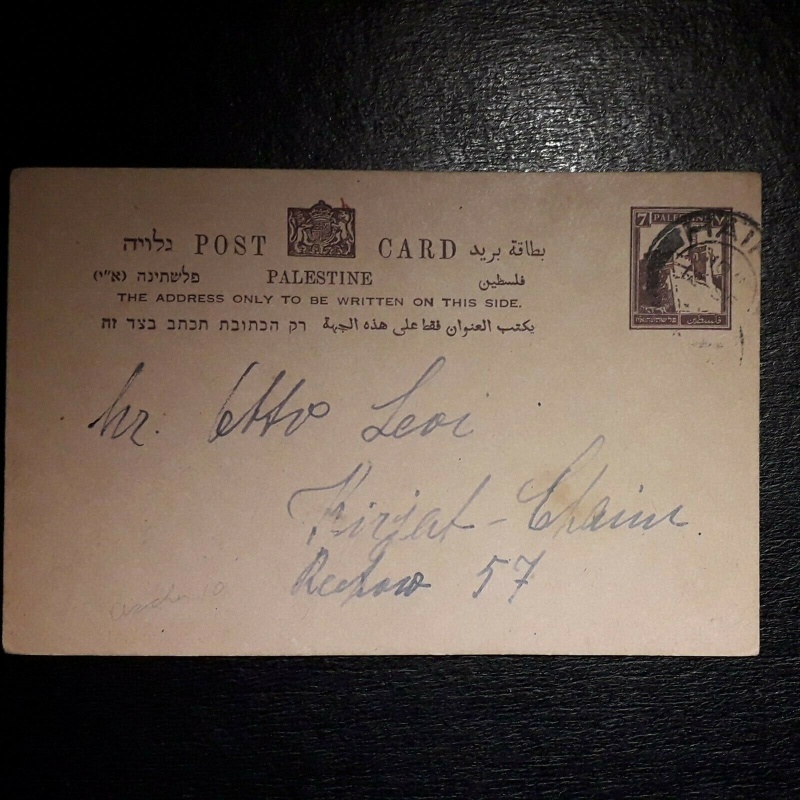 גלויה POST CARD بطاقة بريد
פלשתינה (א"י) PALESTINE فلسطين
THE ADDRESS ONLY TO BE WRITTEN ON THIS SIDE.
רק הכתובת תכתב בצד זה يكتب العنوان فقط على هذه الجهة
7 PALESTINE
HAIFA
فلسطين פלשתינה א"י
Hr. Otto Levi
Kirjat-Chaim
Rechow 57